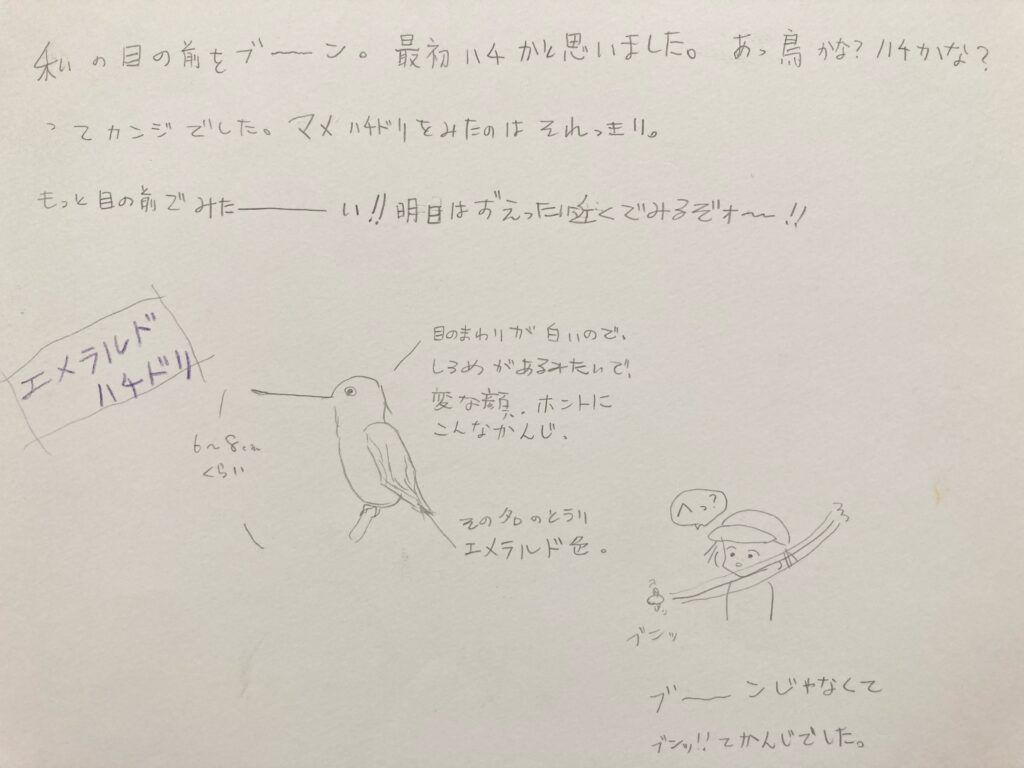 私の目の前をブーーン。最初ハチかと思いました。あっ鳥かな?ハチかな?
ってカンジでした。マメハチドリをみたのはそれっきり。
もっと目の前でみたーーーい!!明日はずえったい近くでみるぞォ〜!!
エメラルド
ハチドリ
目のまわりが白いので、
しろめがあるみたいで、
変な顔、ホントに
こんなかんじ、
6〜8cm
くらい
その名のとうり
エメラルド色。
へっ?
ブンッ
ブーーンじゃなくて
ブンッ!!てかんじでした。